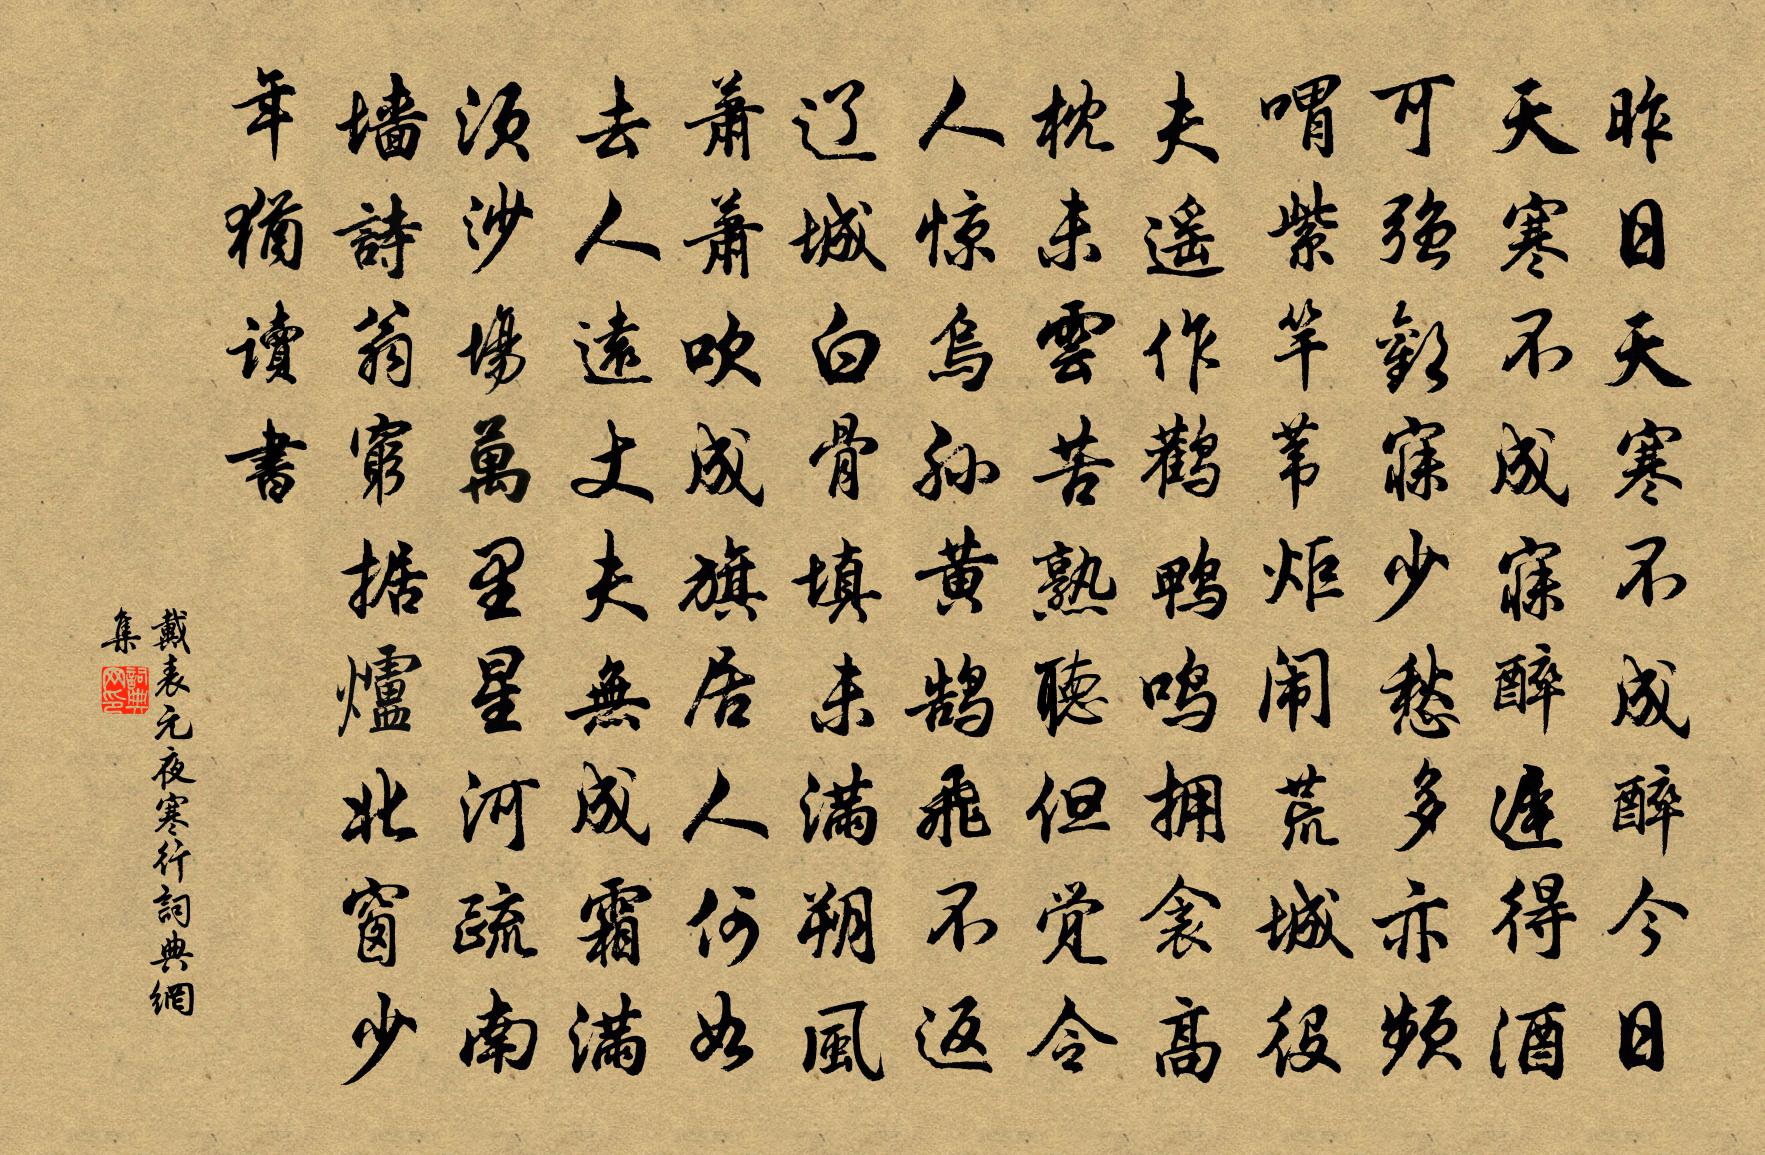 昨日天寒不成醉今日
天寒不成寐醉遲得酒
可强歡寐少愁多亦頻
喟紫竿苇炬闹荒城役
夫遥作鹳鸭鸣拥衾高
枕未雲苦熟聽但觉令
人惊烏孙黄鹄飛不返
辽城白骨填未满朔風
萧萧吹成旗居人何如
去人遠丈夫無成霜满
须沙場萬里星河疏南
墙詩翁窮据爐北窗少
年猶读書
戴表元夜寒行詞典網
集
詞典
网印